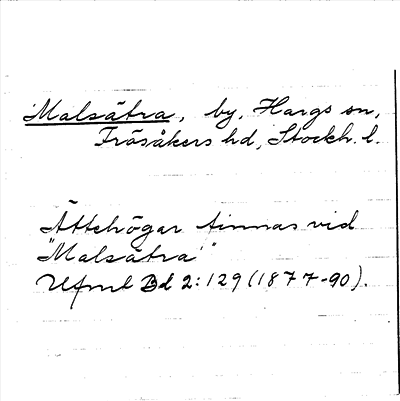 Malsätra, by, Hargs sn,
Frösåkers hd, Stockh. l.
Ättehögar finnas vid
"Malsätra"
Ufml Bd 2:129 (1877-90).